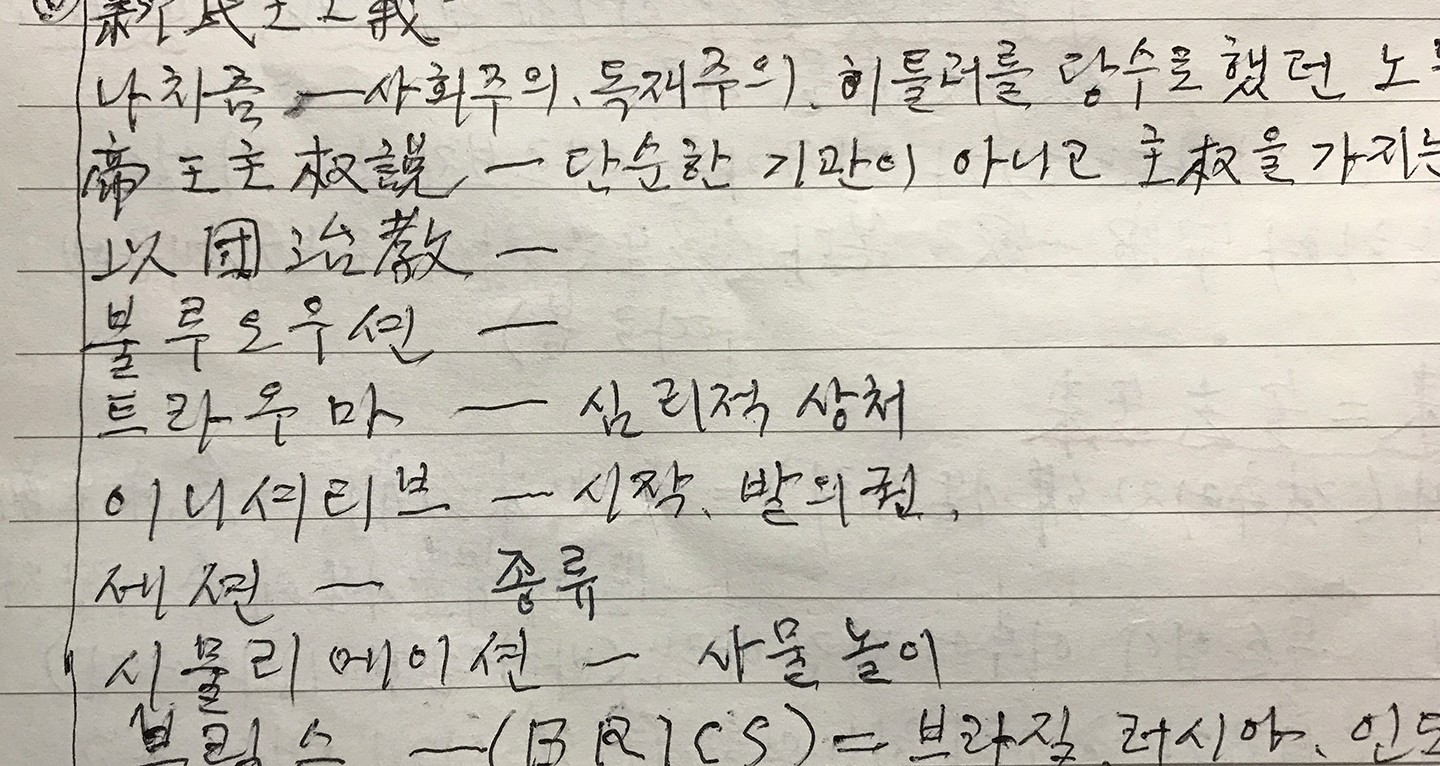 나치즘 — 사회주의, 독재주의, 히틀러를 당수로 했던 노
帝王主权說 — 단순한 기관이 아니고 主权을 가지는
以國治教 —
불루오우션 —
트라우마 — 심리적 상처
이니셔티브 — 시작, 발의권,
세션 — 종류
시물리에이션 — 사물놀이
브릭스 — (BRICS) = 브라질, 러시아, 인도